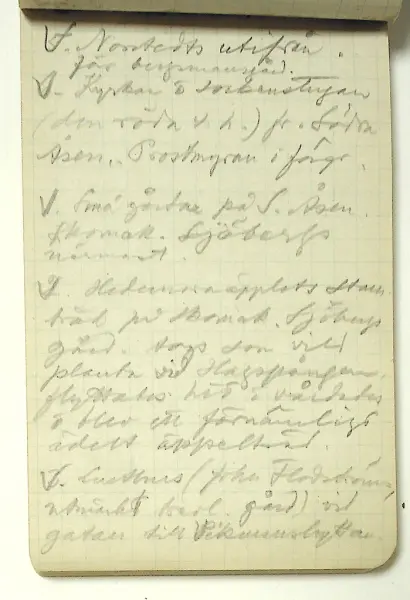 V. Norstedts utifrån.
för bergsmansgård.
V. Kyrkan o sockenstugan
(den röda t. h.) fr. Södra
Åsen. Prostmyran i förgr.
V. Små gårdar på S. Åsen.
Skomak. Sjöbergs
närmast.
V. Hedemoraäpplets stam-
träd på skomak. Sjöbergs
gård. togs som vild
planta vid
flyttades hit o vårdades
o blev ett förnämligt
ädelt äppelträd.
V. (John Flodströms,
utmärkt gård) vid
gatan till Vikmanshyttan.